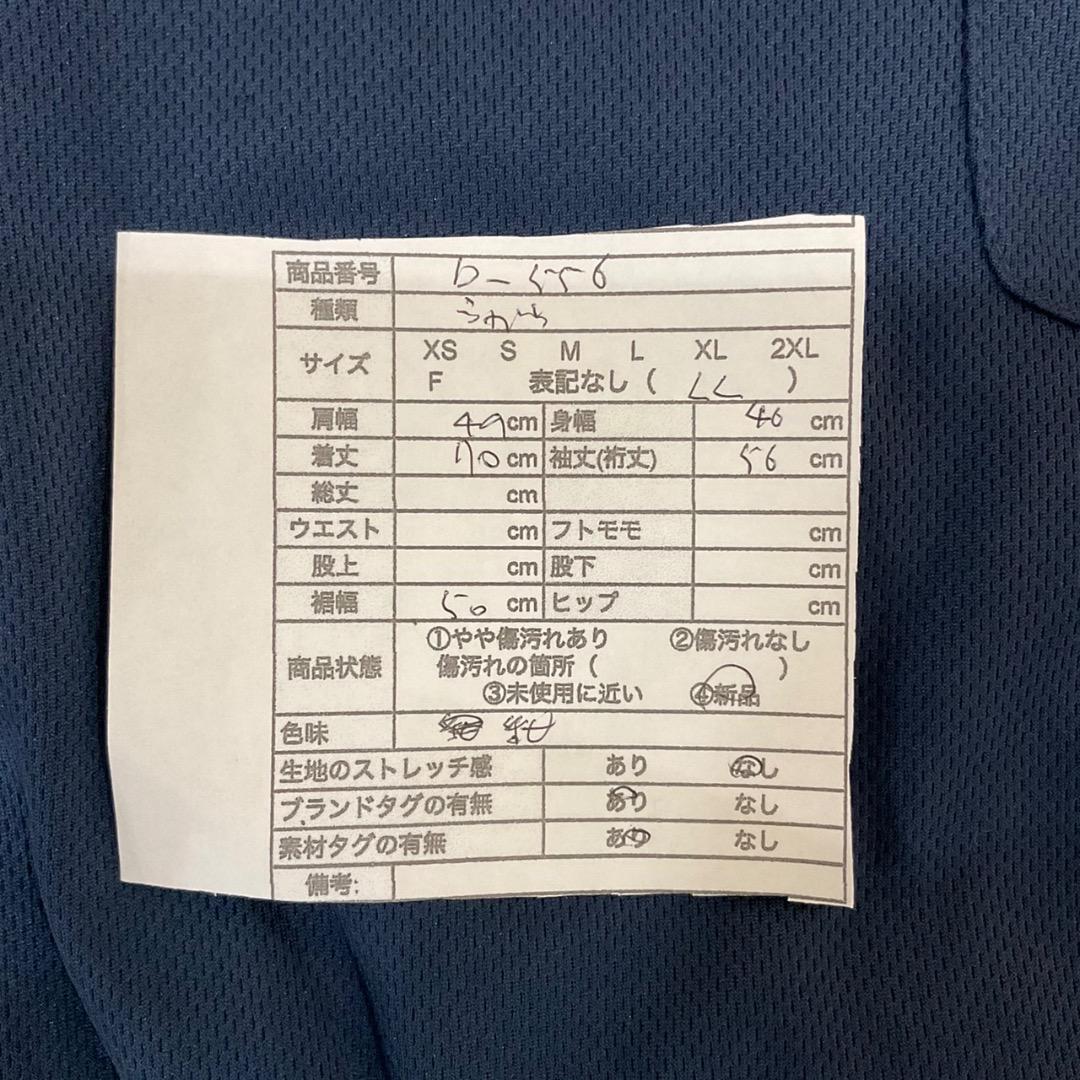 商品番号 D-556
種類
サイズ XS S M L XL 2XL
F 表記なし ( LL )
肩幅 49cm 身幅 46 cm
着丈 70cm 袖丈(裄丈) 56 cm
総丈 cm
ウエスト cm フトモモ cm
股上 cm 股下 cm
裾幅 50 cm ヒップ cm
商品状態 ①やや傷汚れあり ②傷汚れなし
傷汚れの箇所 ( )
③未使用に近い ④新品
色味 紺
生地のストレッチ感 あり なし
ブランドタグの有無 あり なし
素材タグの有無 あり なし
備考: